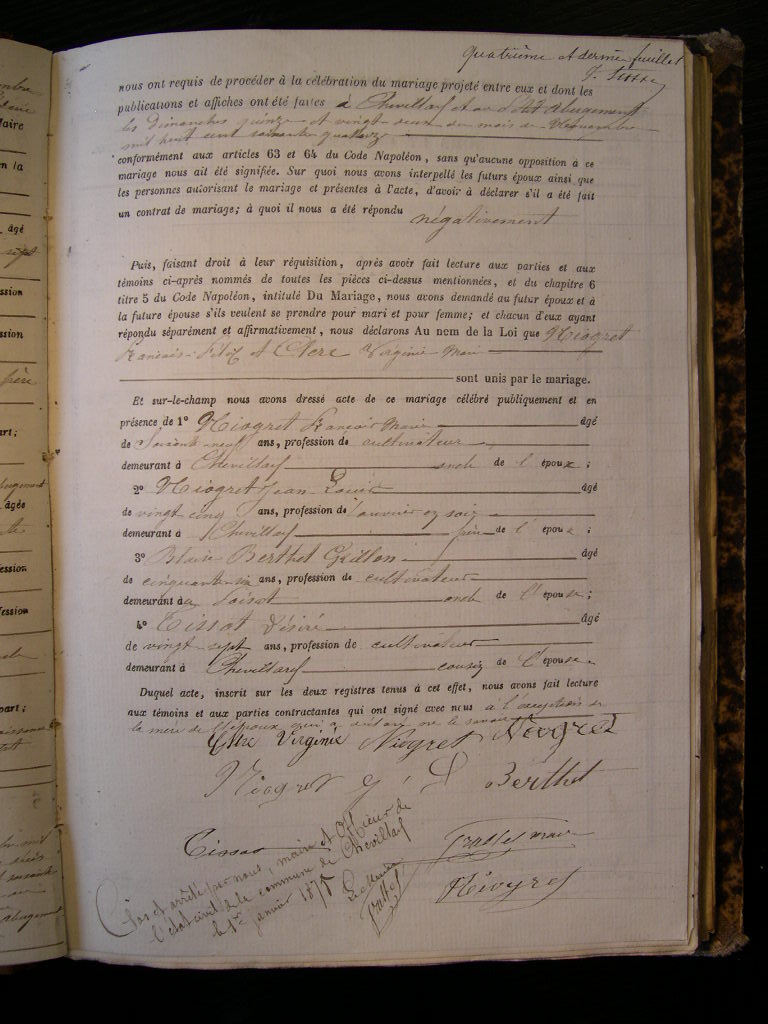 Quatrième et dernier feuillet
nous ont requis de procéder à la célébration du mariage projeté entre eux et dont les
publications et affiches ont été faites à Chevillard et au d'
les dimanches quinze et vingt-deux du mois de Novembre
mil huit cent soixante quatorze
conformément aux articles 63 et 64 du Code Napoléon, sans qu'aucune opposition à ce
mariage nous ait été signifiée. Sur quoi nous avons interpellé les futurs époux ainsi que
les personnes autorisant le mariage et présentes à l'acte, d'avoir à déclarer s'il a été fait
un contrat de mariage; à quoi il nous a été répondu négativement
Puis, faisant droit à leur réquisition, après avoir fait lecture aux parties et aux
témoins ci-après nommés de toutes les pièces ci-dessus mentionnées, et du chapitre 6
titre 5 du Code Napoléon, intitulé Du Mariage, nous avons demandé au futur époux et à
la future épouse s'ils veulent se prendre pour mari et pour femme; et chacun d'eux ayant
répondu séparément et affirmativement, nous déclarons Au nom de la Loi que Niogret
François- et Clerc Virginie Marie
sont unis par le mariage.
Et sur-le-champ nous avons dressé acte de ce mariage célébré publiquement et en
présence de 1° Niogret François Marie âgé
de Soixante-neuf ans, profession de cultivateur
demeurant à Chevillard oncle de l'époux;
2° Niogret Jean Louis âgé
de vingt cinq ans, profession de ouvrier en soie
demeurant à Chevillard frère de l'époux;
3° Berthet Grillon âgé
de cinquante-six ans, profession de cultivateur
demeurant à oncle de l'épouse;
4° Tissot Désiré âgé
de vingt-sept ans, profession de cultivateur
demeurant à Chevillard cousin de l'épouse.
Duquel acte, inscrit sur les deux registres tenus à cet effet, nous avons fait lecture
aux témoins et aux parties contractantes qui ont signé avec nous à l'exception de
la mère de l'époux qui a déclaré ne le savoir
Clerc Virginie Niogret Niogret
Niogret J. L. Berthet
Tissot
Niogret
Clos et arrêté par nous, maire et Officier de
l'état civil de la commune de Chevillard
le 1er janvier 1875